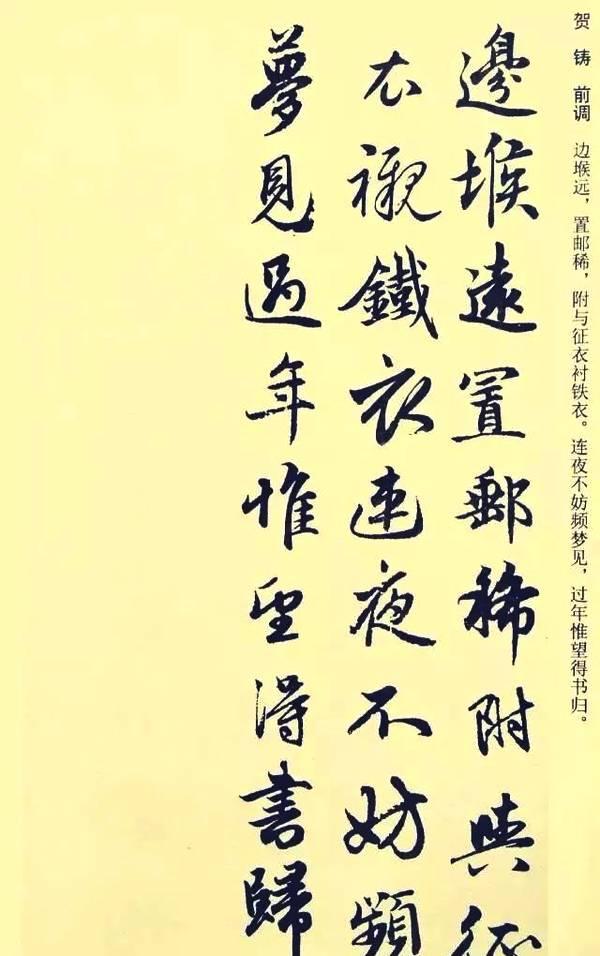 贺铸 前调 边堠远，置邮稀，附与征衣衬铁衣。连夜不妨频梦见，过年惟望得书归。
邊堠遠置郵稀附與征
衣襯鐵衣連夜不妨頻
夢見過年惟望得書歸